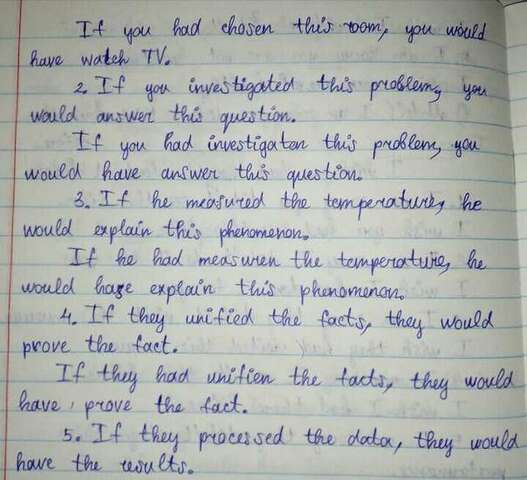 If you had chosen this room, you would
have watch TV.
2. If you investigated this problem, you
would answer this question.
If you had investigaten this problem, you
would have answer this question.
3. If he measured the temperature, he
would explain this phenomenon.
If he had measuren the temperature, he
would have explain this phenomenon.
4. If they unified the facts, they would
prove the fact.
If they had unifien the facts, they would
have prove the fact.
5. If they processed the data, they would
have the results.